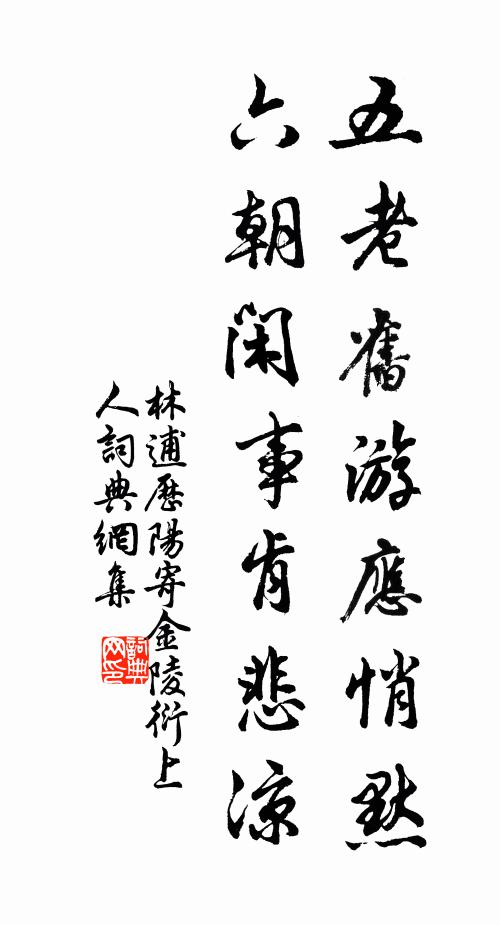 五老舊游應悄默
六朝閑事肯悲涼
林逋歷陽寄金陵衍上
人詞典網集
詞典網印